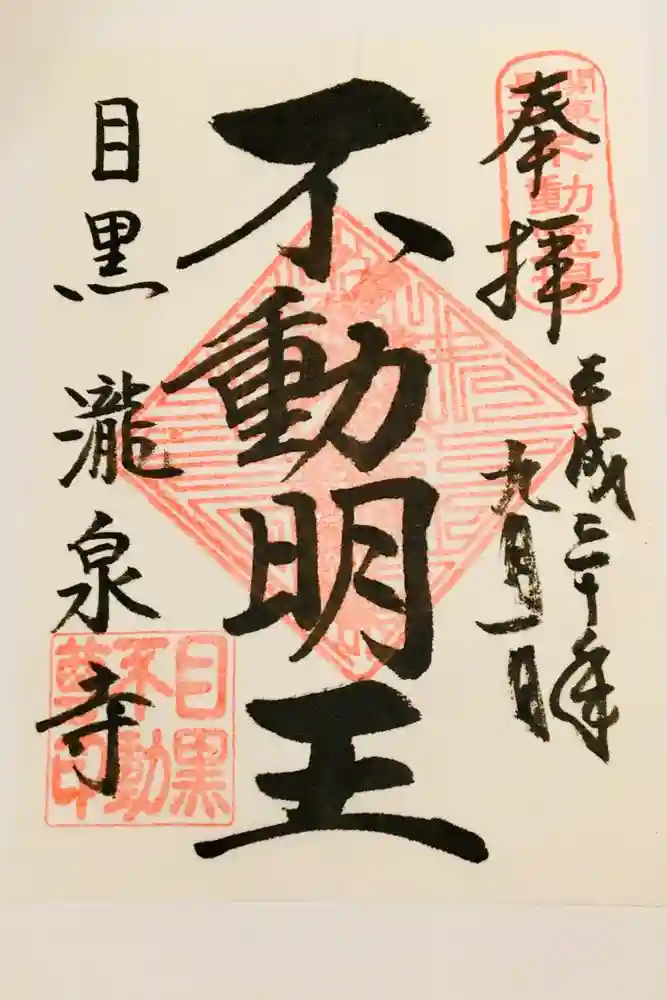 奉拝
平成三十年
九月一日
不動明王
目黒瀧泉寺
関東
不動霊場
目黒
不動
尊印